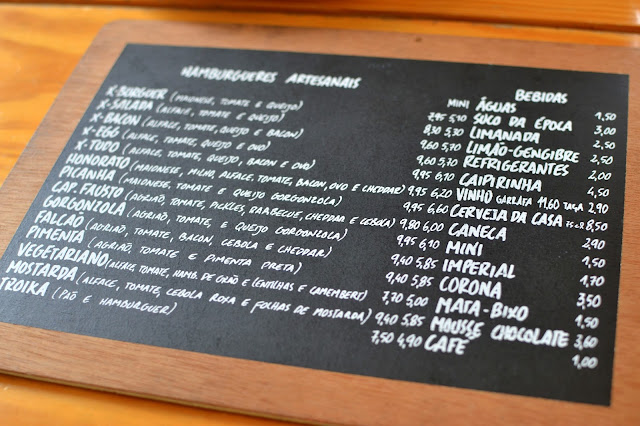 HAMBURGUERES ARTESANAIS
MINI
X-BURGUER (MAIONESE, TOMATE E QUEIJO) 7,95 5,10
X-SALADA (ALFACE, TOMATE E QUEIJO) 8,30 5,30
X-BACON (ALFACE, TOMATE, QUEIJO E BACON) 9,60 5,70
X-EGG (ALFACE, TOMATE, QUEIJO E OVO) 9,60 5,70
X-TUDO (ALFACE, TOMATE, QUEIJO, BACON E OVO) 9,95 6,10
HONORATO (MAIONESE, MILHO, ALFACE, TOMATE, BACON, OVO E CHEDDAR) 9,95 6,20
PICANHA (MAIONESE, TOMATE E QUEIJO GORGONZOLA) 9,95 6,60
CAP. FAUSTO (AGRIÃO, TOMATE, PICKLES, BARBECUE, CHEDDAR E CEBOLA) 9,80 6,00
GORGONZOLA (AGRIÃO, TOMATE, E QUEIJO GORGONZOLA) 9,95 6,10
FALCÃO (AGRIÃO, TOMATE, BACON, CEBOLA E CHEDDAR) 9,40 5,85
PIMENTA (AGRIÃO, TOMATE E PIMENTA PRETA) 9,40 5,85
VEGETARIANO (ALFACE, TOMATE, HAMB. DE GRÃO E LENTILHAS E CAMEMBERT) 7,70 5,00
MOSTARDA (ALFACE, TOMATE, CEBOLA ROXA E FOLHAS DE MOSTARDA) 9,40 5,85
TROIKA (PÃO E HAMBURGUER) 7,50 4,90
BEBIDAS
ÁGUAS 1,50
SUCO DA ÉPOCA 3,00
LIMANADA 2,50
LIMÃO-GENGIBRE 2,50
REFRIGERANTES 2,00
CAIPIRINHA 4,50
VINHO GARRAFA 11,60 TAÇA 2,90
CERVEJA DA CASA 8,50
CANECA 2,90
MINI 1,50
IMPERIAL 1,70
CORONA 3,50
MATA-BIXO 1,50
MOUSSE CHOCOLATE 3,60
CAFÉ 1,00